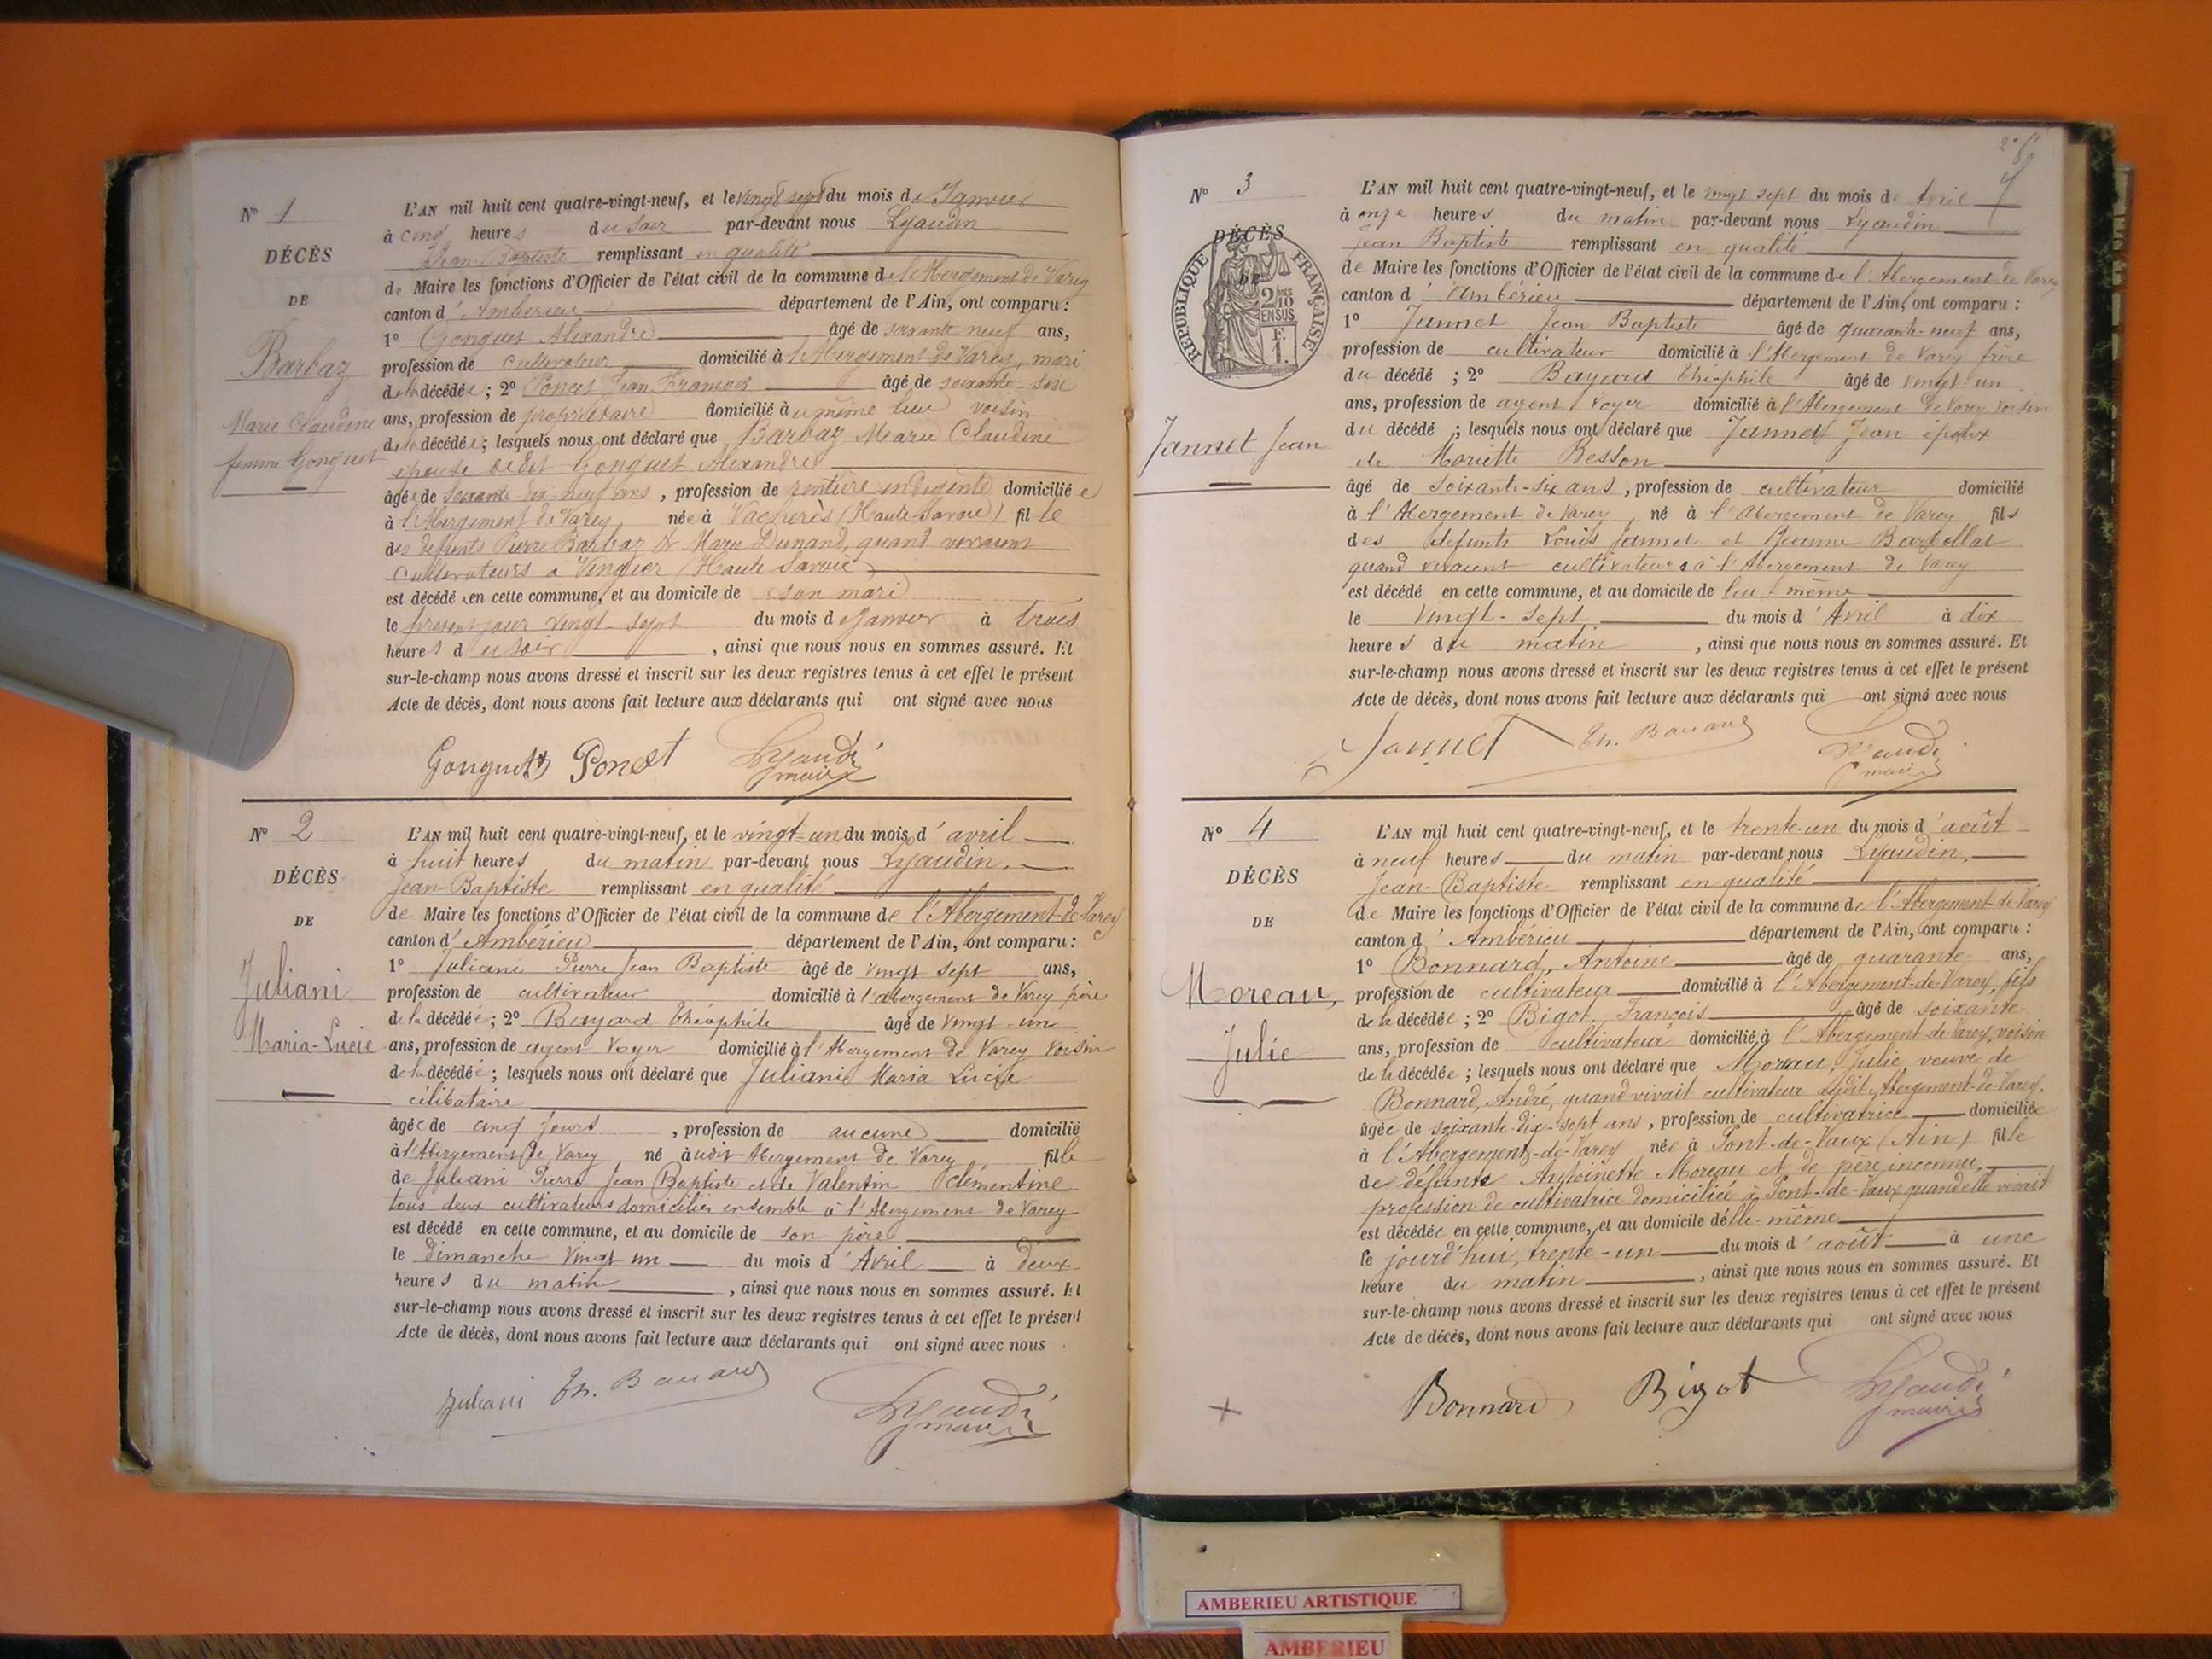 N° 1
DÉCÈS
DE
Barbaz
Marie Claudine
femme Gonguet
L'AN mil huit cent quatre-vingt-neuf, et le vingt sept du mois de Janvier
à cinq heures du soir par-devant nous Lyaudin
Jean Baptiste remplissant en qualité
de Maire les fonctions d'Officier de l'état civil de la commune de l'Abergement de Varey
canton d'Ambérieu département de l'Ain, ont comparu :
1° Gonguet Alexandre âgé de soixante neuf ans,
profession de cultivateur domicilié à l'Abergement de Varey, mari
de la décédée ; 2° Poncet Jean François âgé de soixante-
ans, profession de propriétaire domicilié au même lieu voisin
de la décédée ; lesquels nous ont déclaré que Barbaz Marie Claudine
épouse dudit Gonguet Alexandre
âgée de soixante dix-neuf ans, profession de rentière indigente domiciliée
à l'Abergement de Varey, née à Vacherès (Haute-Savoie) fille
des défunts Pierre Barbaz & Marie Dunand, quand vivaient
cultivateurs à (Haute Savoie)
est décédé en cette commune, et au domicile de son mari
le present jour vingt-sept du mois de Janvier à trois
heures du soir, ainsi que nous nous en sommes assuré. Et
sur-le-champ nous avons dressé et inscrit sur les deux registres tenus à cet effet le présent
Acte de décès, dont nous avons fait lecture aux déclarants qui ont signé avec nous
Gonguet Poncet Lyaudi
maire
N° 2
DÉCÈS
DE
Juliani
Maria-Lucie
L'AN mil huit cent quatre-vingt-neuf, et le vingt-un du mois d'avril
à huit heures du matin par-devant nous Lyaudin,
Jean-Baptiste remplissant en qualité
de Maire les fonctions d'Officier de l'état civil de la commune de l'Abergement-de-Varey
canton d'Ambérieu département de l'Ain, ont comparu :
1° Juliani Pierre Jean Baptiste âgé de vingt sept ans,
profession de cultivateur domicilié à l'abergement de Varey père
de la décédée ; 2° Bayard Théophile âgé de vingt-un
ans, profession de agent Voyer domicilié à l'Abergement de Varey voisin
de la décédée ; lesquels nous ont déclaré que Juliani Maria Lucie
célibataire
âgée de cinq jours, profession de aucune domicilié
à l'Abergement de Varey né audit Abergement de Varey fille
de Juliani Pierre Jean Baptiste et de Valentin Clémentine
tous deux cultivateurs domiciliés ensemble à l'Abergement de Varey
est décédé en cette commune, et au domicile de son père
le dimanche vingt un du mois d'Avril à deux
heures du matin, ainsi que nous nous en sommes assuré. Et
sur-le-champ nous avons dressé et inscrit sur les deux registres tenus à cet effet le présent
Acte de décès, dont nous avons fait lecture aux déclarants qui ont signé avec nous
Juliani Th. Bayard Lyaudi
maire
N° 3
DÉCÈS
DE
RÉPUBLIQUE FRANÇAISE
2/10
EN SUS
F.
1.
Jannet Jean
L'AN mil huit cent quatre-vingt-neuf, et le vingt sept du mois de Avril
à onze heures du matin par-devant nous Lyaudin
Jean Baptiste remplissant en qualité
de Maire les fonctions d'Officier de l'état civil de la commune de l'Abergement de Varey
canton d'Ambérieu département de l'Ain, ont comparu :
1° Jannet Jean Baptiste âgé de quarante-neuf ans,
profession de cultivateur domicilié à l'Abergement de Varey frère
du décédé ; 2° Bayard Théophile âgé de vingt-un
ans, profession de agent Voyer domicilié à l'Abergement de Varey voisin
du décédé ; lesquels nous ont déclaré que Jannet Jean époux
de Mariette Besson
âgé de soixante-six ans, profession de cultivateur domicilié
à l'Abergement de Varey né à l'Abergement de Varey fils
des défunts Louis Jannet et Jeanne Barbollat
quand vivaient cultivateurs à l'Abergement de Varey
est décédé en cette commune, et au domicile de lui-même
le vingt-sept du mois d'Avril à dix
heures du matin, ainsi que nous nous en sommes assuré. Et
sur-le-champ nous avons dressé et inscrit sur les deux registres tenus à cet effet le présent
Acte de décès, dont nous avons fait lecture aux déclarants qui ont signé avec nous
Jannet Th. Bayard Lyaudi
maire
N° 4
DÉCÈS
DE
Moreau,
Julie
L'AN mil huit cent quatre-vingt-neuf, et le trente-un du mois d'août
à neuf heures du matin par-devant nous Lyaudin,
Jean-Baptiste remplissant en qualité
de Maire les fonctions d'Officier de l'état civil de la commune de l'Abergement-de-Varey
canton d'Ambérieu département de l'Ain, ont comparu :
1° Bonnard, Antoine âgé de quarante ans,
profession de cultivateur domicilié à l'Abergement-de-Varey, fils
de la décédée ; 2° Bigot, François âgé de soixante
ans, profession de cultivateur domicilié à l'Abergement-de-Varey, voisin
de la décédée ; lesquels nous ont déclaré que Moreau, Julie, veuve de
Bonnard, André, quand vivait cultivateur audit Abergement-de-Varey,
âgée de soixante-dix-sept ans, profession de cultivatrice domiciliée
à l'Abergement-de-Varey née à Pont-de-Vaux (Ain) fille
de défunte Antoinette Moreau et de père inconnu,
profession de cultivatrice domiciliée à Pont-de-Vaux quand elle vivait
est décédée en cette commune, et au domicile d'elle-même
le jourd'hui, trente-un du mois d'août à une
heure du matin, ainsi que nous nous en sommes assuré. Et
sur-le-champ nous avons dressé et inscrit sur les deux registres tenus à cet effet le présent
Acte de décès, dont nous avons fait lecture aux déclarants qui ont signé avec nous
Bonnard Bigot Lyaudi
maire
AMBERIEU ARTISTIQUE
AMBERIEU